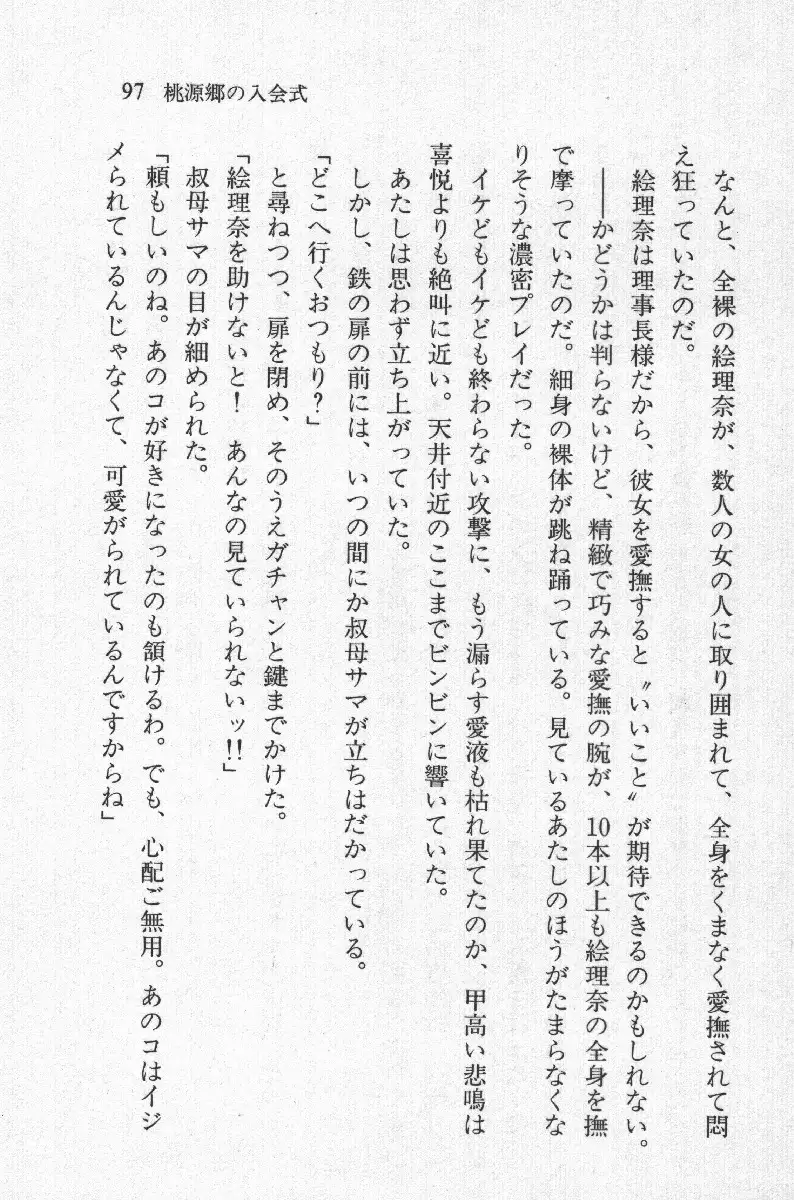 97 桃源郷の入会式
なんと、全裸の絵理奈が、数人の女の人に取り囲まれて、全身をくまなく愛撫されて悶
え狂っていたのだ。
絵理奈は理事長様だから、彼女を愛撫すると〝いいこと〟が期待できるのかもしれない。
――かどうかは判らないけど、精緻で巧みな愛撫の腕が、10本以上も絵理奈の全身を撫
で摩っていたのだ。細身の裸体が跳ね踊っている。見ているあたしのほうがたまらなくな
りそうな濃密プレイだった。
イケどもイケども終わらない攻撃に、もう漏らす愛液も枯れ果てたのか、甲高い悲鳴は
喜悦よりも絶叫に近い。天井付近のここまでビンビンに響いていた。
あたしは思わず立ち上がっていた。
しかし、鉄の扉の前には、いつの間にか叔母サマが立ちはだかっている。
「どこへ行くおつもり?」
と尋ねつつ、扉を閉め、そのうえガチャンと鍵までかけた。
「絵理奈を助けないと! あんなの見ていられないッ!!」
叔母サマの目が細められた。
「頼もしいのね。あのコが好きになったのも頷けるわ。でも、心配ご無用。あのコはイジ
メられているんじゃなくて、可愛がられているんですからね」